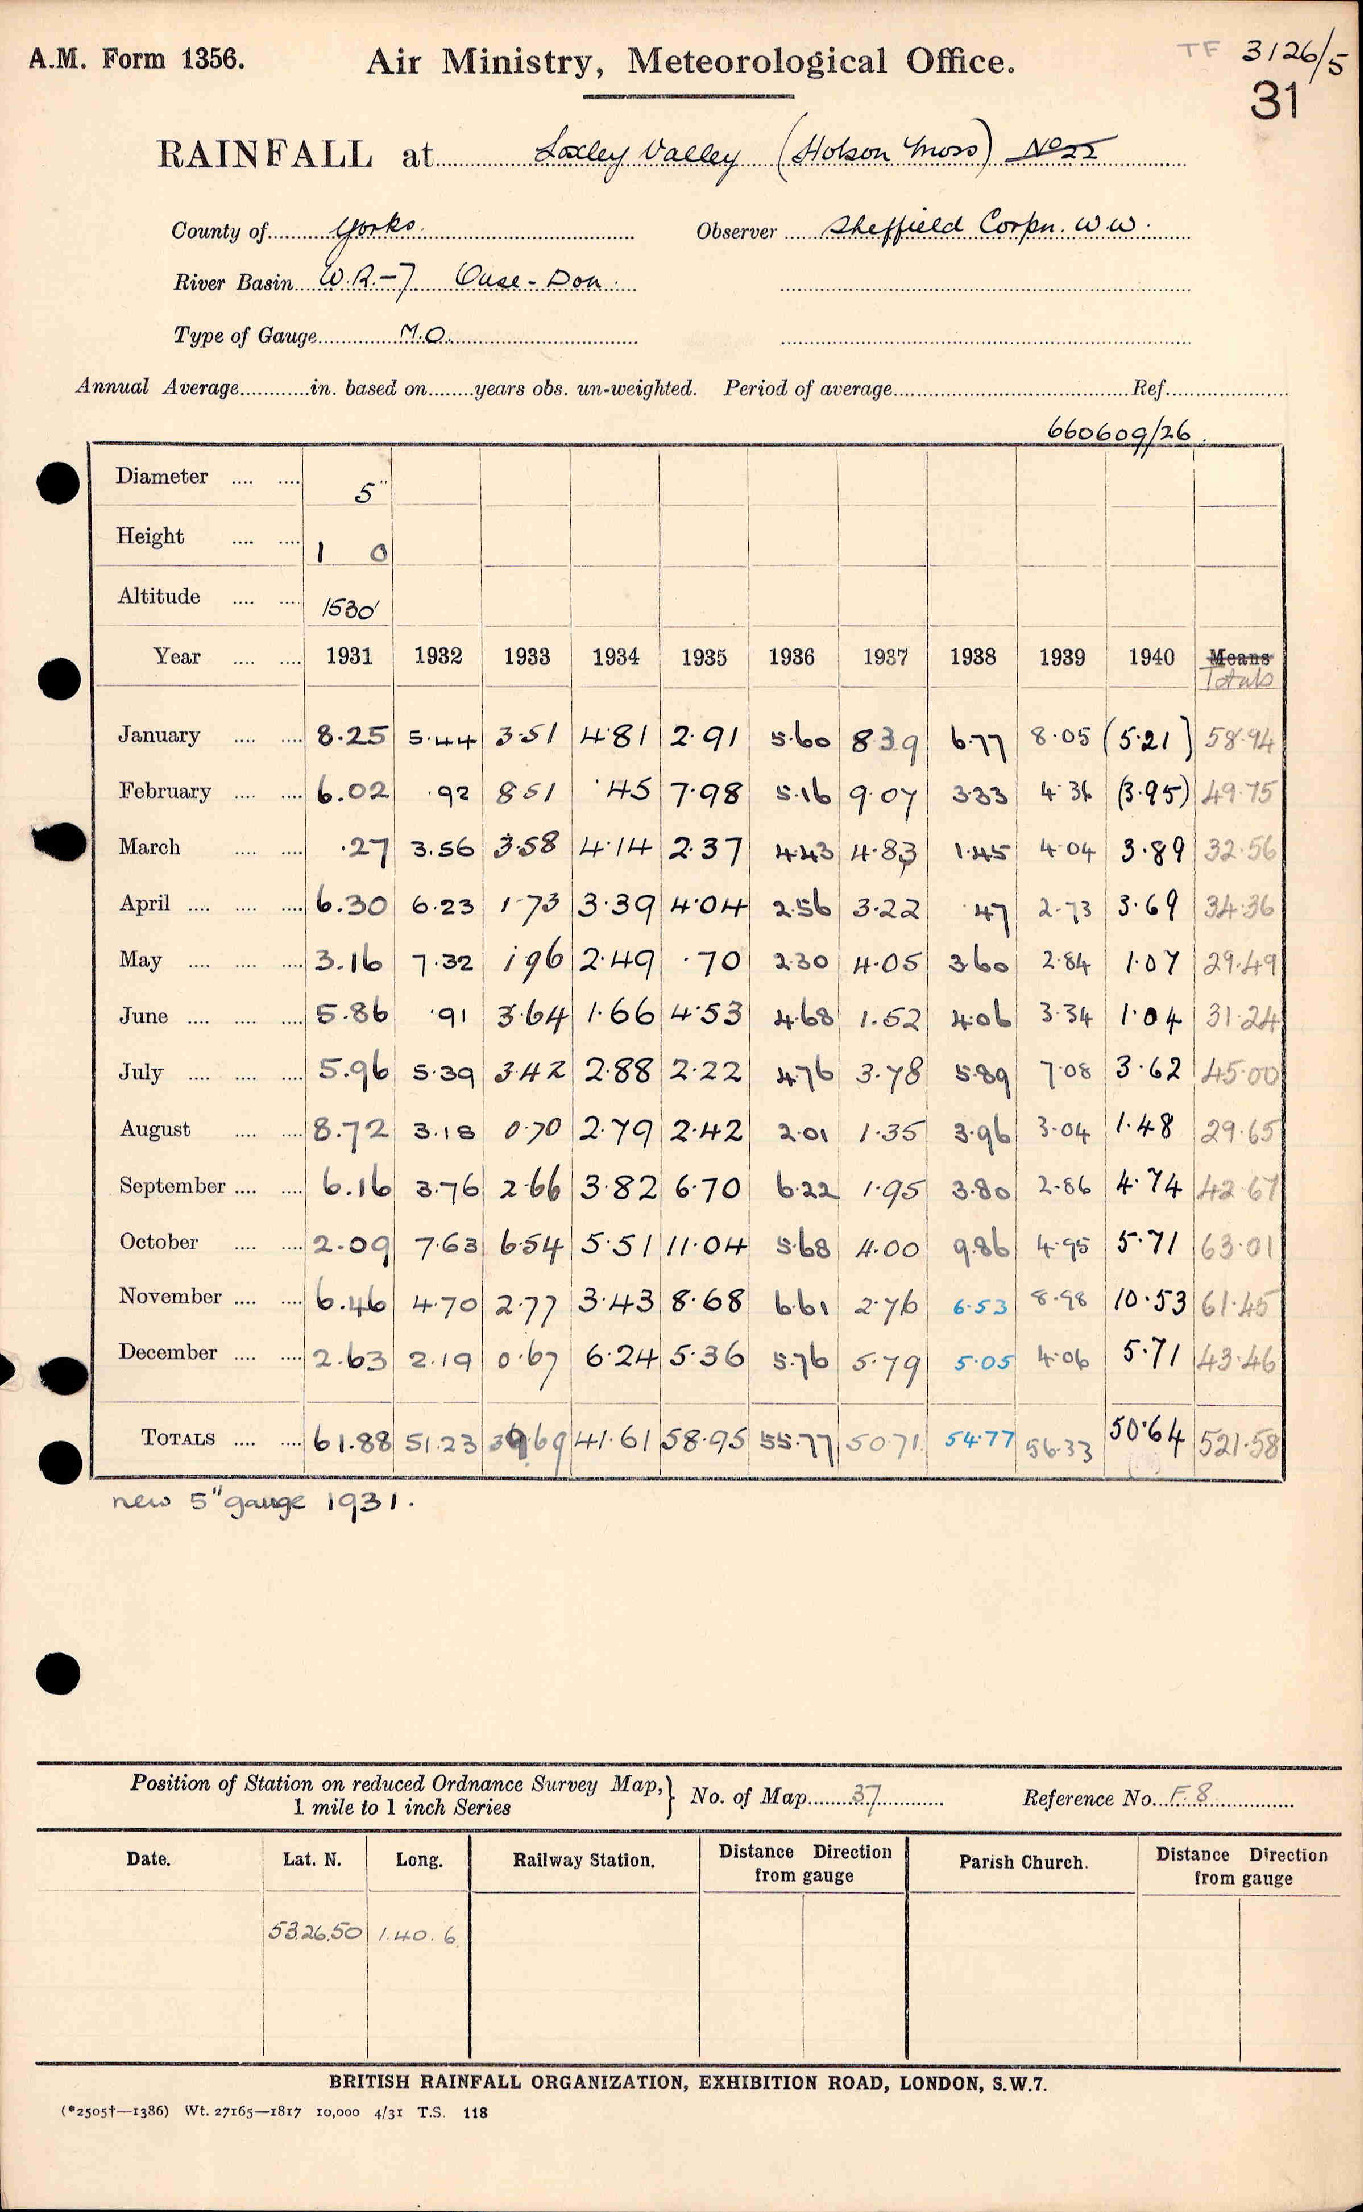 A.M. Form 1356. Air Ministry, Meteorological Office. TF 3126/5
31
RAINFALL at Loxley Valley (Hobson Moss) No 22
County of Yorks. Observer Sheffield Corpn. W W.
River Basin W.R.-7 Ouse - Don.
Type of Gauge M.O.
Annual Average............in. based on........years obs. un-weighted. Period of average.................... Ref....................
660609/26.
Diameter .... .... 5"
Height .... .... 1 0
Altitude .... .... 1530'
Year .... .... 1931 1932 1933 1934 1935 1936 1937 1938 1939 1940 Means Totals
January .... .... 8.25 5.44 3.51 4.81 2.91 5.60 8.39 6.77 8.05 (5.21) 58.94
February .... .... 6.02 .92 8 51 .45 7.98 5.16 9.07 3.33 4.36 (3.95) 49.75
March .... .... .27 3.56 3.58 4.14 2.37 4.43 4.83 1.45 4 04 3.89 32.56
April .... .... .... 6.30 6.23 1.73 3.39 4.04 2.56 3.22 .47 2.73 3.69 34.36
May .... .... .... 3.16 7.32 1 96 2.49 .70 2.30 4.05 3.60 2.84 1.07 29.49
June .... .... .... 5.86 .91 3.64 1.66 4.53 4.68 1.52 4.06 3.34 1.04 31.24
July .... .... .... 5.96 5.39 3.42 2.88 2.22 4.76 3.78 5.89 7.08 3.62 45.00
August .... .... 8.72 3.18 0.70 2.79 2.42 2.01 1.35 3.96 3.04 1.48 29.65
September .... .... 6.16 3.76 2.66 3.82 6.70 6.22 1.95 3.80 2.86 4.74 42.67
October .... .... 2.09 7.63 6.54 5.51 11.04 5.68 4.00 9.86 4.95 5.71 63.01
November .... .... 6.46 4.70 2.77 3.43 8.68 6.61 2.76 6.53 8.98 10.53 61.45
December .... .... 2.63 2.19 0.67 6.24 5.36 5.76 5.79 5.05 4.06 5.71 43.46
TOTALS .... .... 61.88 51.23 39.69 41.61 58.95 55.77 50.71 54.77 56.33 50.64 521.58
new 5" gauge 1931.
Position of Station on reduced Ordnance Survey Map, } No. of Map 37 Reference No. F. 8
1 mile to 1 inch Series
Date. Lat. N. Long. Railway Station. Distance Direction from gauge Parish Church. Distance Direction from gauge
53.26.50 1.40.6
BRITISH RAINFALL ORGANIZATION, EXHIBITION ROAD, LONDON, S.W.7.
(*2505†—1386) Wt. 27165—1817 10,000 4/31 T.S. 118